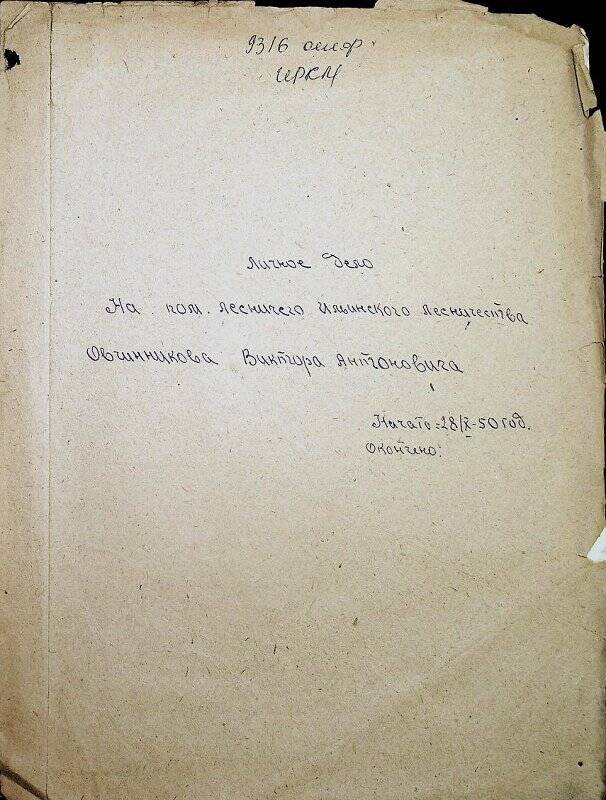 9316 оипф
ИРКМ
Личное Дело
На пом. лесничего Ильинского лесничества
Овчинникова Виктора Антоновича
Начато: 28/X-50 год.
Окончено: